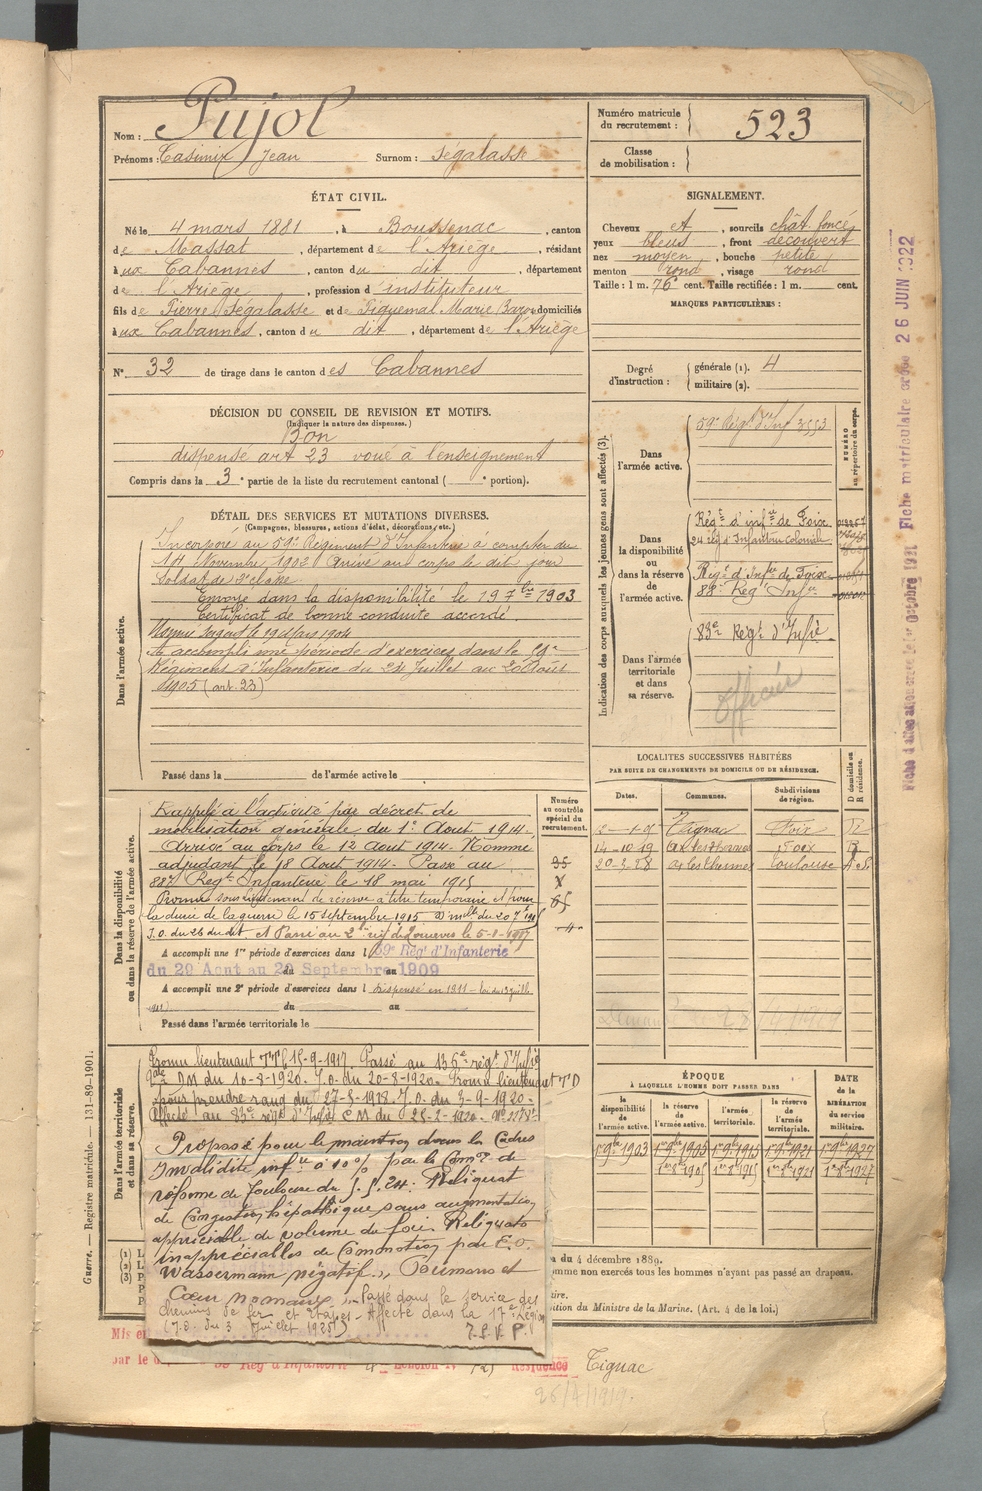 Nom : Pujol
Prénoms : Casimir Jean Surnom : Ségalasse
Numéro matricule du recrutement : 523
Classe de mobilisation :
ÉTAT CIVIL.
Né le 4 mars 1881, à Boussenac, canton
de Massat, département de l'Ariège, résidant
à aux Cabannes, canton du dit, département
de l'Ariège, profession d'instituteur
fils de Pierre Ségalasse et de Piquemal Marie domiciliés
à aux Cabannes, canton du dit, département de l'Ariège
N° 32 de tirage dans le canton des Cabannes
SIGNALEMENT.
Cheveux et, sourcils chât. foncé
yeux bleus, front découvert
nez moyen, bouche petite
menton rond, visage rond
Taille : 1 m. 76 cent. Taille rectifiée : 1 m. cent.
MARQUES PARTICULIÈRES :
Degré d'instruction : générale (1). 4
militaire (2).
DÉCISION DU CONSEIL DE REVISION ET MOTIFS.
(Indiquer la nature des dispenses.)
Bon
dispensé art 23 voué à l'enseignement
Compris dans la 3e partie de la liste du recrutement cantonal ( e portion).
DÉTAIL DES SERVICES ET MUTATIONS DIVERSES.
(Campagnes, blessures, actions d'éclat, décorations, etc.)
Dans l'armée active.
Incorporé au 59e Régiment d'Infanterie à compter du
14 Novembre 1902 Arrivé au corps le dit jour
soldat de 2e classe
Envoyé dans la disponibilité le 19 7bre 1903
Certificat de bonne conduite accordé
Nommé Sergent le 19 Mars 1904
A accompli une période d'exercices dans le 59e
Régiment d'Infanterie du 24 Juillet au 20 Août
1905 (art. 23)
Passé dans la de l'armée active le
Dans la disponibilité ou dans la réserve de l'armée active.
Numéro au contrôle spécial du recrutement.
Rappelé à l'activité par décret de
mobilisation générale du 1er Août 1914.
Arrivé au corps le 12 Août 1914. Nommé
adjudant le 18 Août 1914. Passé au
88e Regt Infanterie le 18 mai 1915
Promu sous lieutenant de réserve à titre temporaire et pour
la durée de la guerre le 15 septembre 1915
J.O. du 26 du dit
A accompli une 1re période d'exercices dans l 59e Régt d'Infanterie
du 29 Aout au 20 Septembre 1909
A accompli une 2e période d'exercices dans l Dispensé en 1911
du au
Passé dans l'armée territoriale le
Dans l'armée territoriale et dans sa réserve.
Promu lieutenant TT le 15-9-1917. Passé au 136e régt d'Infie
DM du 10-8-1920. J.O. du 20-8-1920. Promu lieutenant TD
pour prendre rang du 27-5-1918. J.O. du 3-9-1920.
Affecté au 83e régt d'Infie
Proposé pour le maintien dans les Cadres
Invalidité infre à 10% par la Comon de
réforme de Toulouse du Reliquat
de Congestion hépathique sans augmentation
appréciable de volume du foie. Reliquats
inappréciables de Commotion par E.O.
Wassermann négatif., Poumons et
Cœur normaux. Passé dans le service des
chemins de fer et étapes. Affecté dans la 17e Région
(J.O. du 3 Juillet 1925)
Indication des corps auxquels les jeunes gens sont affectés (3).
NUMÉRO au répertoire du corps.
Dans l'armée active. 59e Régt d'Inf 3553
Dans la disponibilité ou dans la réserve de l'armée active.
Régt d'infie de Foix
24 rég d'Infanterie Coloniale
Régt d'Infie de Foix
88e Régt Infie
Dans l'armée territoriale et dans sa réserve.
83e Régt d'Infie
Officier
LOCALITES SUCCESSIVES HABITÉES
PAR SUITE DE CHANGEMENTS DE DOMICILE OU DE RÉSIDENCE.
Dates. Communes. Subdivisions de région. D domicile ou R résidence.
Tignac Foix R
14-10-19 Ax les thermes Foix
20-3-28 ax les thermes Toulouse
ÉPOQUE
À LAQUELLE L'HOMME DOIT PASSER DANS
la disponibilité de l'armée active. la réserve de l'armée active. l'armée territoriale. la réserve de l'armée territoriale.
DATE de la LIBÉRATION du service militaire.
1er 9bre 1903 1er 9bre 1905 1er 9bre 1915 1er 9bre 1921 1er 9bre 1927
1er 8bre 1905 1er 8bre 1915 1er 8bre 1921 1er 8bre 1927
du 4 décembre 1889.
omme non exercés tous les hommes n'ayant pas passé au drapeau.
ition du Ministre de la Marine. (Art. 4 de la loi.)
Mis e
par le d Rég d'Infanterie Echelon Résidence Tignac
26/4/1919.
Guerre. — Registre matricule. — 131-89-1901.
Fiche matriculaire créée 26 JUIN 1922